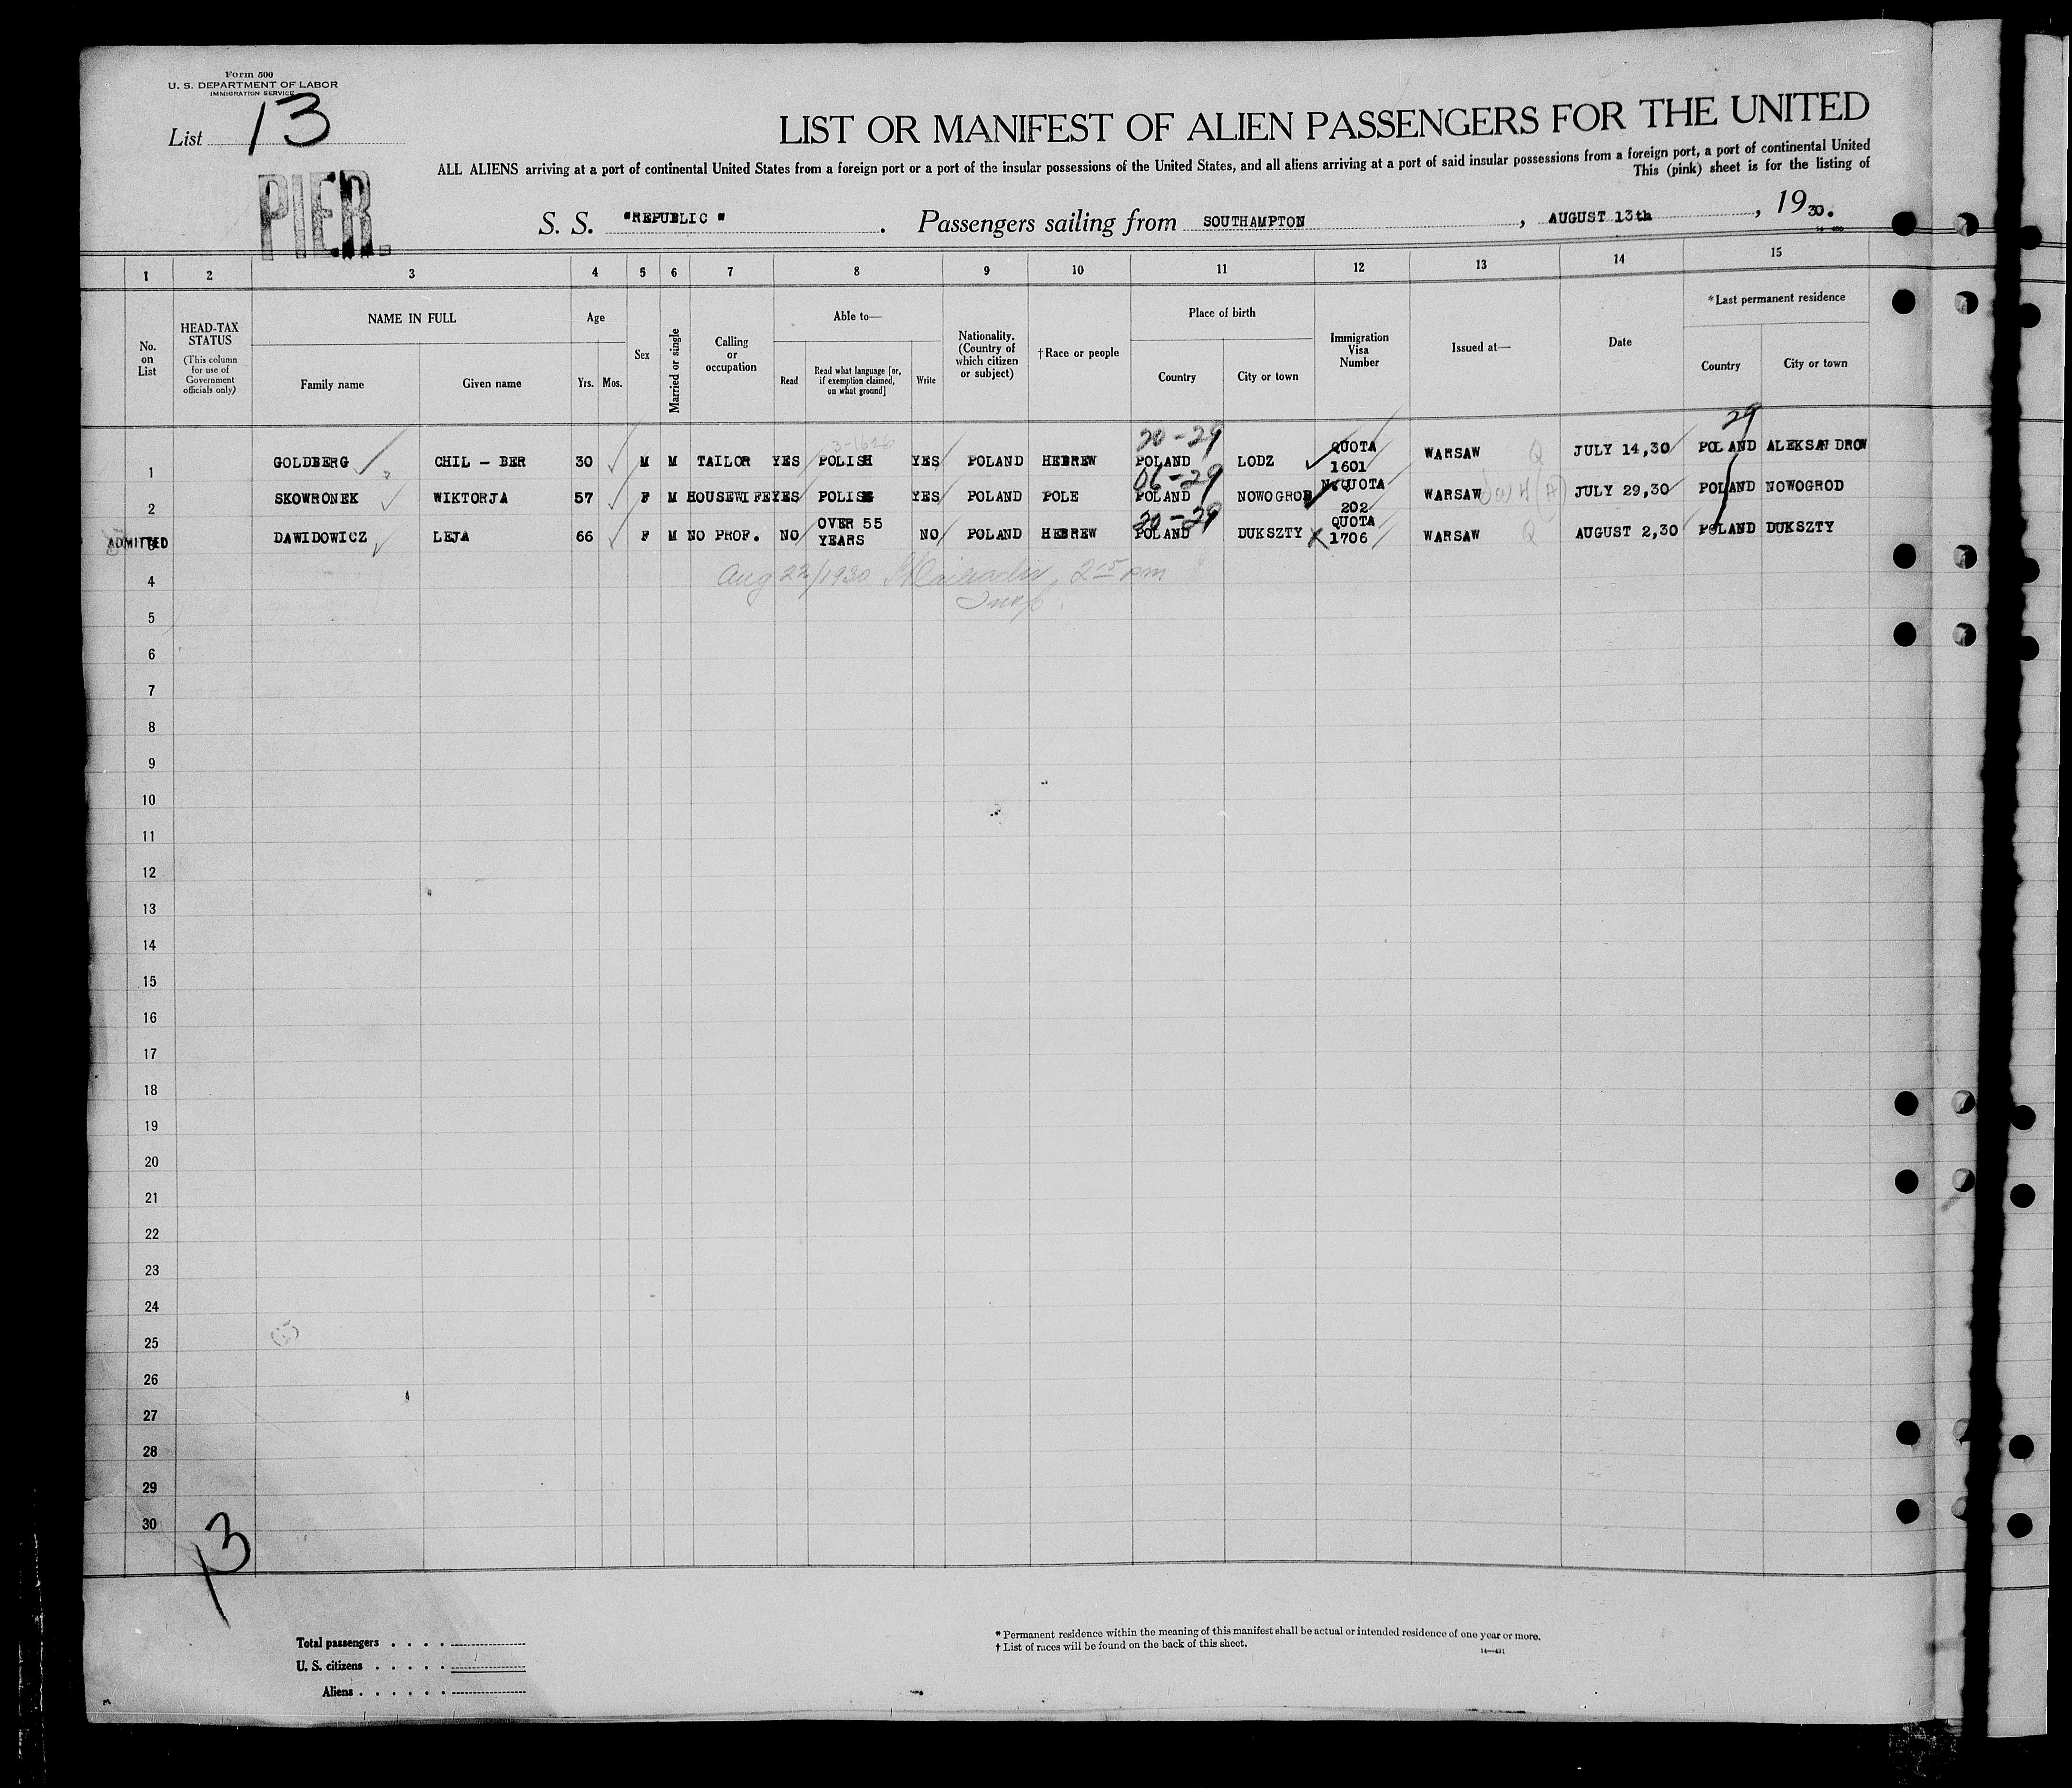 Form 500
U. S. DEPARTMENT OF LABOR
IMMIGRATION SERVICE
List 13
PIER.
LIST OR MANIFEST OF ALIEN PASSENGERS FOR THE UNITED
ALL ALIENS arriving at a port of continental United States from a foreign port or a port of the insular possessions of the United States, and all aliens arriving at a port of said insular possessions from a foreign port, a port of continental United
This (pink) sheet is for the listing of
S. S. "REPUBLIC". Passengers sailing from SOUTHAMPTON, AUGUST 13th, 1930.
1 2 3 4 5 6 7 8 9 10 11 12 13 14 15
No. on List
HEAD-TAX STATUS
(This column for use of Government officials only)
NAME IN FULL
Family name Given name
Age
Yrs. Mos.
Sex
Married or single
Calling or occupation
Able to—
Read
Read what language [or, if exemption claimed, on what ground]
Write
Nationality. (Country of which citizen or subject)
†Race or people
Place of birth
Country City or town
Immigration Visa Number
Issued at—
Date
*Last permanent residence
Country City or town
29
3-1626 20-29
1 GOLDBERG CHIL - BER 30 M M TAILOR YES POLISH YES POLAND HEBREW POLAND LODZ QUOTA 1601 WARSAW Q JULY 14,30 POLAND ALEKSANDROW
06-29
2 SKOWRONEK WIKTORJA 57 F M HOUSEWIFE YES POLISH YES POLAND POLE POLAND NOWOGROD N.QUOTA 202 WARSAW JULY 29,30 POLAND NOWOGROD
20-29
ADMITTED 3 DAWIDOWICZ LEJA 66 F M NO PROF. NO OVER 55 YEARS NO POLAND HEBREW POLAND DUKSZTY QUOTA 1706 WARSAW Q AUGUST 2,30 POLAND DUKSZTY
4 Aug 22/1930 2 15 pm
Insp.
5
6
7
8
9
10
11
12
13
14
15
16
17
18
19
20
21
22
23
24
25
26
27
28
29
30
13
Total passengers
U. S. citizens
Aliens
* Permanent residence within the meaning of this manifest shall be actual or intended residence of one year or more.
† List of races will be found on the back of this sheet.
14—431